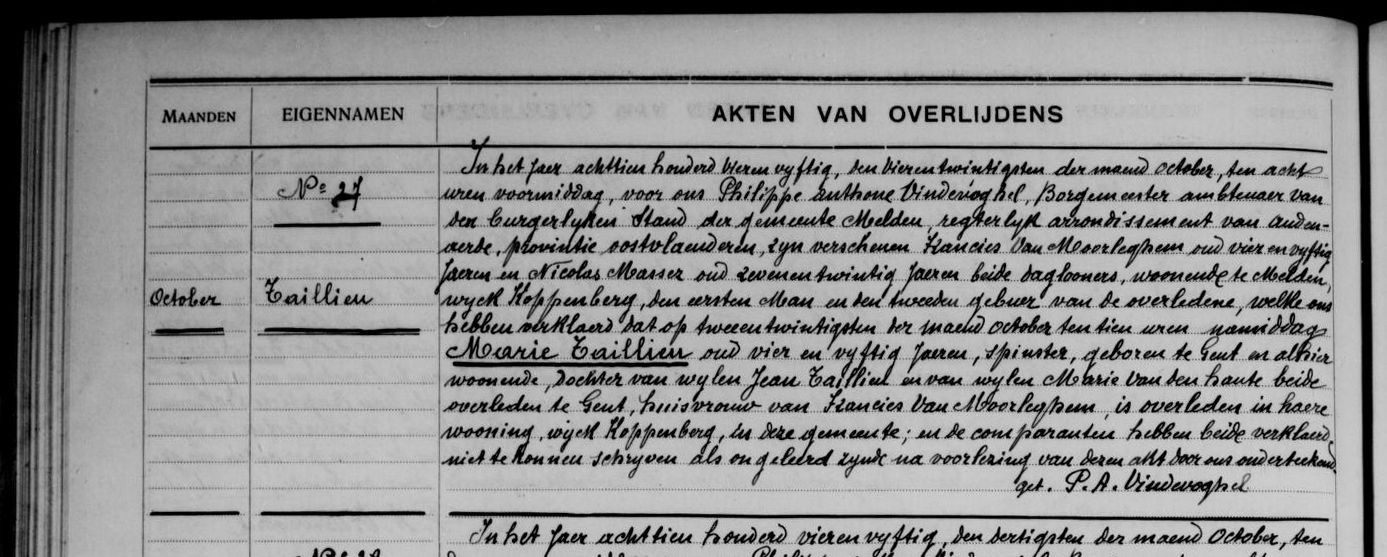 MAANDEN EIGENNAMEN AKTEN VAN OVERLIJDENS
In het Jaer achttien honderd vieren vyftig, den vierentwintigsten der maend October, ten acht
Nº 27
uren voormiddag, voor ons Philippe Anthone Vindevoghel, Borgemeester ambtenaer van
den Burgerlyken Stand der gemeente Melden, regterlyk arrondissement van auden-
aerde, provintie oostvlaenderen, zyn verschenen Francies Van Moorleghem oud vier en vyftig
Jaeren en Nicolas Massez oud zevenentwintig Jaeren beide daglooners, woonende te Melden,
October Taillieu wyck Koppenberg, den eersten Man en den tweeden gebuer van de overledene, welke ons
hebben verklaerd dat op tweeentwintigsten der maend October ten tien uren namiddag
Marie Taillieu oud vier en vyftig Jaeren, spinster, geboren te Gent en alhier
woonende, dochter van wylen Jean Taillieu en van wylen Marie Van den haute beide
overleden te Gent, huisvrouw van Francies Van Moorleghem, is overleden in haere
wooning, wyck Koppenberg, in deze gemeente; en de comparanten hebben beide verklaerd
niet te konnen schryven als ongeleerd zynde na voorlezing van dezen akt door ons onderteekend.
get. P. A. Vindevoghel
In het Jaer achttien honderd vieren vyftig, den dertigsten der maend October, ten